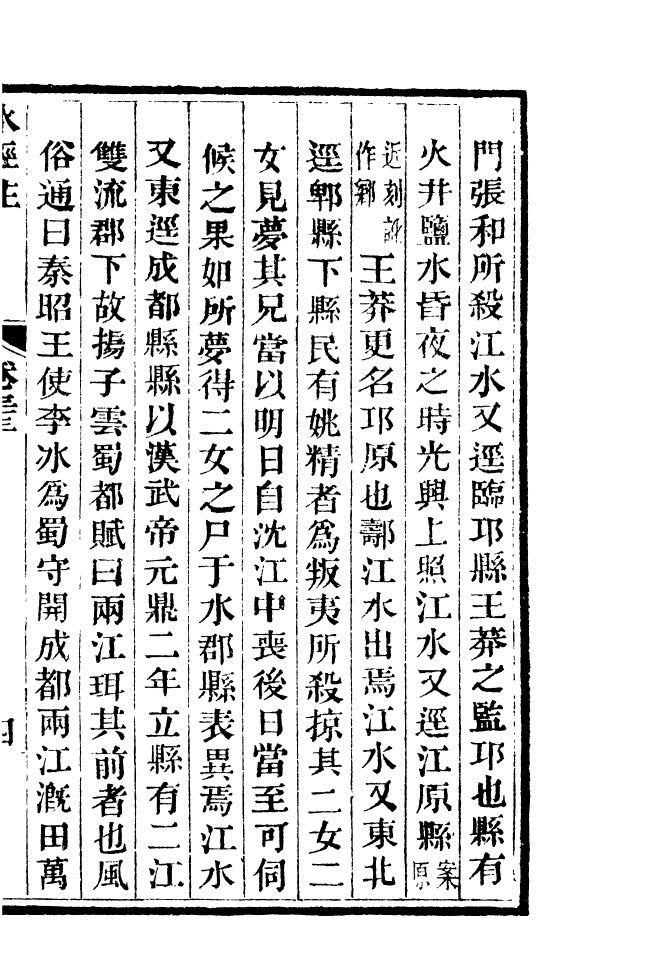 門張和所殺江水又逕臨邛縣王莽之監邛也縣有
火井鹽水昏夜之時光興上照江水又逕江原縣案原
近刻訛作鄉王莽更名邛原也䣝江水出焉江水又東北
逕郫縣下縣民有姚精者爲叛夷所殺掠其二女二
女見夢其兄當以明日自沈江中喪後日當至可伺
候之果如所夢得二女之尸于水郡縣表異焉江水
又東逕成都縣縣以漢武帝元鼎二年立縣有二江
雙流郡下故揚子雲蜀都賦曰兩江珥其前者也風
俗通曰秦昭王使李冰爲蜀守開成都兩江溉田萬
水經注 卷三十三 四